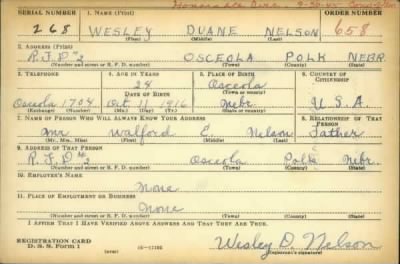 Honorable Disc. 9-30-45
SERIAL NUMBER 1. NAME (Print) ORDER NUMBER
268 WESLEY DUANE NELSON 658
(First) (Middle) (Last)
2. ADDRESS (Print)
R.F.D #2 OSCEOLA POLK NEBR
(Number and street or R. F. D. number) (Town) (County) (State)
3. TELEPHONE 4. AGE IN YEARS 5. PLACE OF BIRTH 6. COUNTRY OF CITIZENSHIP
24 Osceola
DATE OF BIRTH (Town or county)
Osceola 1704 Oct. 11 1916 Nebr. U.S.A.
(Exchange) (Number) (Mo.) (Day) (Yr.) (State or country)
7. NAME OF PERSON WHO WILL ALWAYS KNOW YOUR ADDRESS 8. RELATIONSHIP OF THAT PERSON
Mr Walford E. Nelson Father
(Mr., Mrs., Miss) (First) (Middle) (Last)
9. ADDRESS OF THAT PERSON
R.F.D #2 Osceola Polk Nebr.
(Number and street or R. F. D. number) (Town) (County) (State)
10. EMPLOYER'S NAME
None
11. PLACE OF EMPLOYMENT OR BUSINESS
None
(Number and street or R. F. D. number) (Town) (County) (State)
I AFFIRM THAT I HAVE VERIFIED ABOVE ANSWERS AND THAT THEY ARE TRUE.
REGISTRATION CARD
D. S. S. Form 1 Wesley D. Nelson
(Registrant's signature)